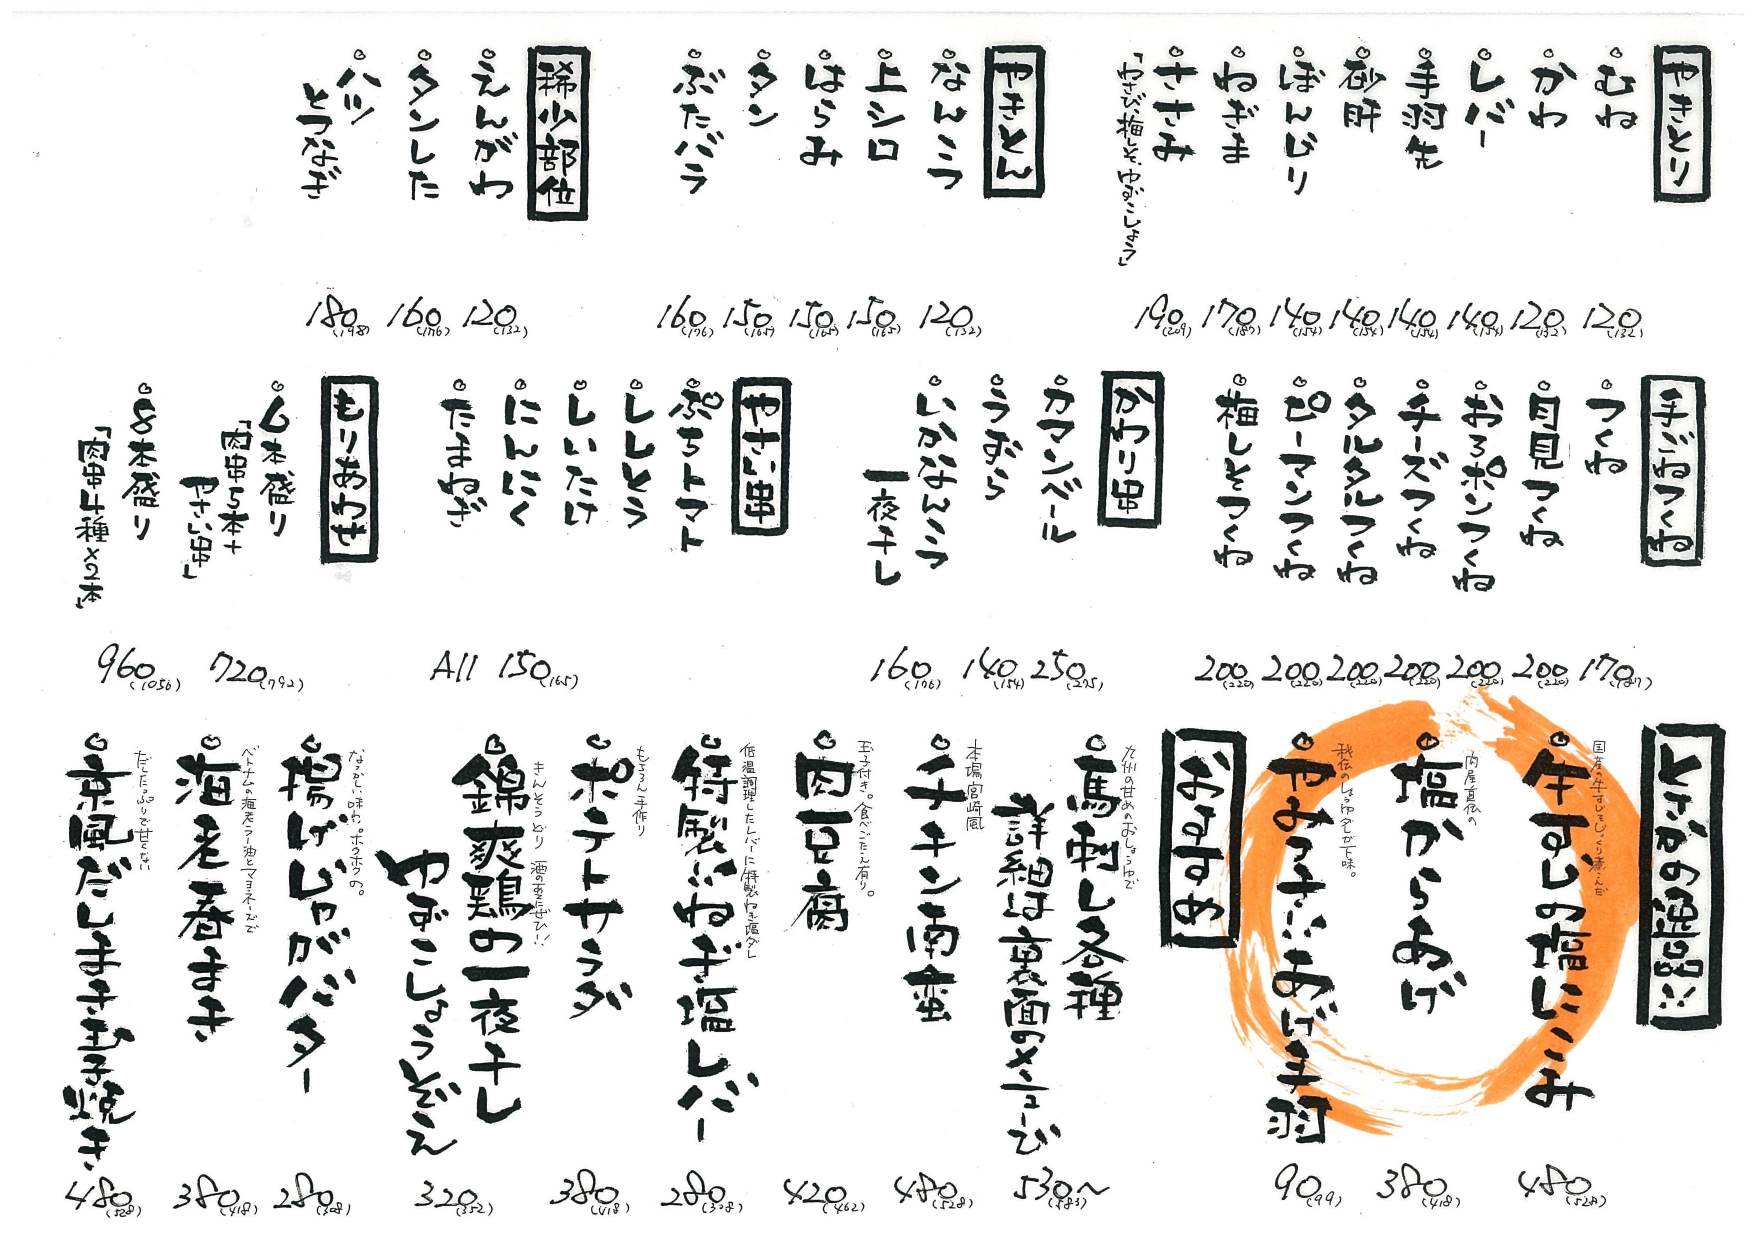 やきとり
むね
120(132)
かわ
120(132)
レバー
140(154)
手羽先
140(154)
砂肝
140(154)
ぼんじり
140(154)
ねぎま
170(187)
ささみ
「わさび、梅しそ、ゆずこしょう」
190(209)
やきとん
なんこつ
120(132)
上シロ
150(165)
はらみ
150(165)
タン
150(165)
ぶたバラ
160(176)
稀少部位
えんがわ
120(132)
タンした
160(176)
ハツ
とつなぎ
180(198)
手ごねつくね
つくね
170(187)
月見つくね
200(220)
おろポンつくね
200(220)
チーズつくね
200(220)
タルタルつくね
200(220)
ピーマンつくね
200(220)
梅しそつくね
200(220)
かわり串
カマンベール
250(275)
うずら
140(154)
いかなんこつ
一夜干し
160(176)
やさい串
ぷちトマト
ししとう
しいたけ
にんにく
たまねぎ
All 150(165)
もりあわせ
6本盛り
「肉串5本+
やさい串」
720(792)
8本盛り
「肉串4種×2本」
960(1056)
とさかの逸品!!
国産の牛すじをじっくり煮こんだ
牛すじの塩にこみ
480(528)
肉屋直伝の
塩からあげ
380(418)
秘伝のしょうゆダレが下味。
やみつき!!あげ手羽
90(99)
おすすめ
九州の甘めのおしょうゆで
馬刺し各種
詳細は裏面のメニューで
530〜(583)
本場宮崎風
チキン南蛮
480(528)
玉子付き。食べごたえ有り。
肉豆腐
420(462)
低温調理したレバーに特製ねぎ塩ダレ
特製!!ねぎ塩レバー
280(308)
もちろん手作り
ポテトサラダ
380(418)
きんそうどり 酒の至にぜひ!!
錦爽鶏の一夜干し
ゆずこしょうぞえ
320(352)
なつかしい味わい。ホクホクの。
揚げじゃがバター
280(308)
ベトナムの海老ラー油とマヨネーズで
海老春まき
380(418)
だしたっぷりで甘くない
京風だしまき玉子焼き
480(528)